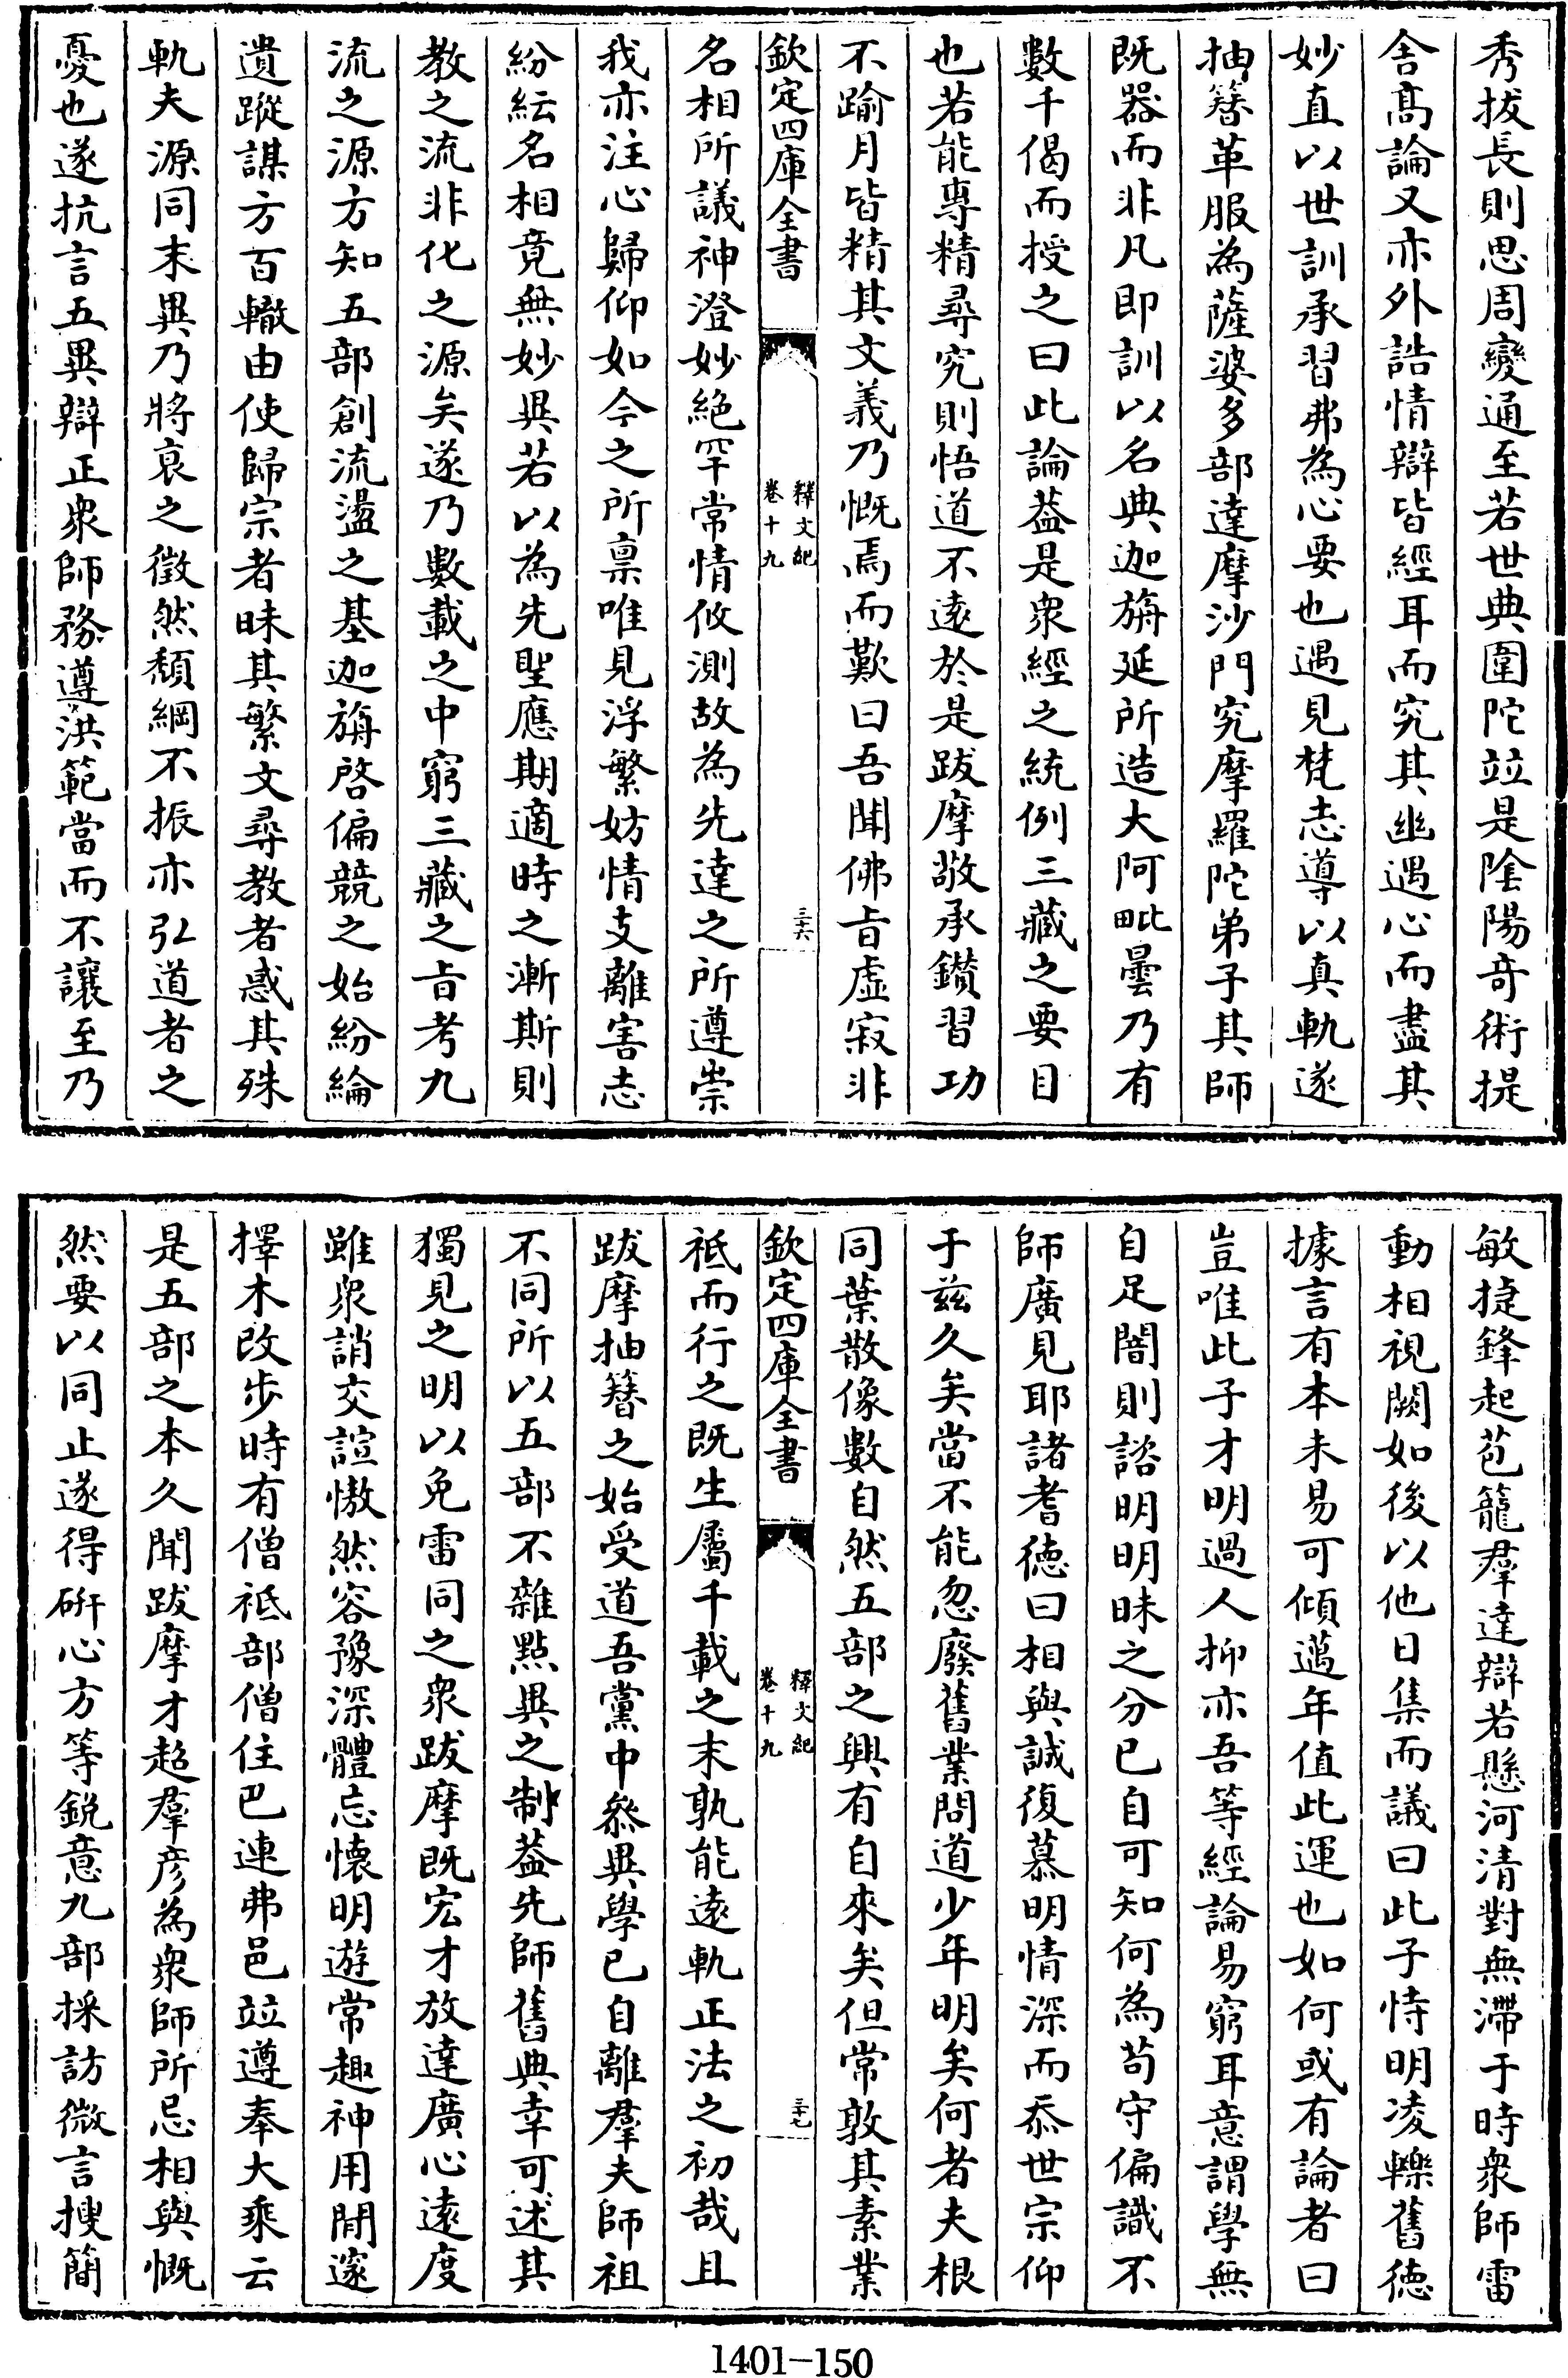 秀拔長則思周變通至若世典圍陀竝是陰陽奇術提
舍髙論又亦外誥情辯皆經耳而究其幽遇心而盡其
妙直以世訓承習弗為心要也遇見梵志導以真軌遂
抽簮革服為薩婆多部達摩沙門究摩羅陀弟子其師
既器而非凡即訓以名典迦旃延所造大阿毗曇乃有
數千偈而授之曰此論葢是衆經之統例三藏之要目
也若能專精尋究則悟道不逺於是跋摩敬承鑚習功
不踰月皆精其文義乃慨焉而歎曰吾聞佛㫖虛寂非
欽定四庫全書
釋文紀
卷十九
三十六
名相所議神澄妙絶罕常情攸測故為先達之所遵崇
我亦注心歸仰如今之所禀唯見浮繁妨情支離害志
紛紜名相竟無妙異若以為先聖應期適時之漸斯則
教之流非化之源矣遂乃數載之中窮三藏之㫖考九
流之源方知五部創流盪之基迦旃啓偏競之始紛綸
遺蹤謀方百轍由使歸宗者昧其繁文尋教者惑其殊
軌夫源同末異乃將衰之徵然頽綱不振亦弘道者之
憂也遂抗言五異辯正衆師務遵洪範當而不讓至乃
敏捷鋒起苞籠羣達辯若懸河清對無滯于時衆師雷
動相視闕如後以他日集而議曰此子恃明凌轢舊徳
據言有本未易可傾邁年值此運也如何或有論者曰
豈唯此子才明過人抑亦吾等經論易窮耳意謂學無
自足闇則諮明明昧之分已自可知何為茍守偏識不
師廣見耶諸耆徳曰相與誠復慕明情深而忝世宗仰
于兹久矣當不能忽廢舊業問道少年明矣何者夫根
同葉散像數自然五部之興有自來矣但常敦其素業
欽定四庫全書
釋文紀
卷十九
三十七
祗而行之既生屬千載之末孰能逺軌正法之初哉且
跋摩抽簮之始受道吾黨中叅異學已自離羣夫師祖
不同所以五部不雜㸃異之制葢先師舊典幸可述其
獨見之明以免雷同之衆跋摩既宏才放達廣心逺度
雖衆誚交諠慠然容豫深體忘懷明遊常趣神用閒邃
擇木改步時有僧祗部僧住巴連弗邑竝遵奉大乘云
是五部之本久聞跋摩才超羣彦為衆師所忌相與慨
然要以同止遂得硏心方等鋭意九部採訪微言搜簡
1401-150